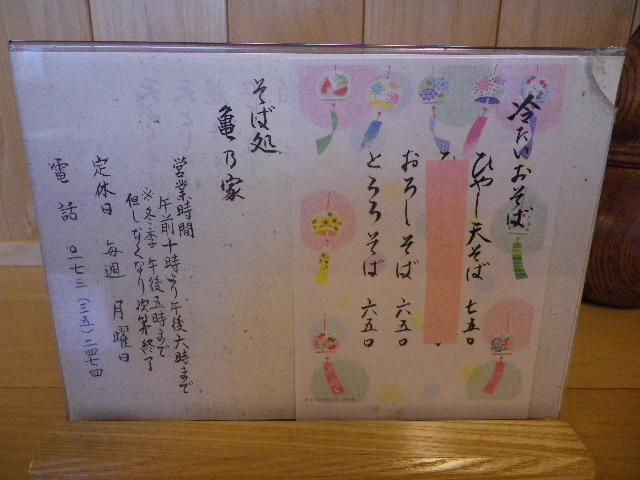 冷たいおそば
ひやし天そば 七五〇
おろしそば 六五〇
とろろそば 六五〇
そば処
亀乃家
営業時間
午前十時より午後六時まで
※冬季午後五時まで
但しなくなり次第終了
定休日 毎週 月曜日
電話 〇一七三(三五)二四七四